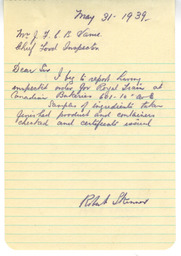 May 31 - 1939
Chief Food Inspector
Dear Sir
I beg to report having
inspected for Royal Train at
Canadian Bakeries
Samples of ingredients taken
finished product and containers
checked and certificate issued
Robert